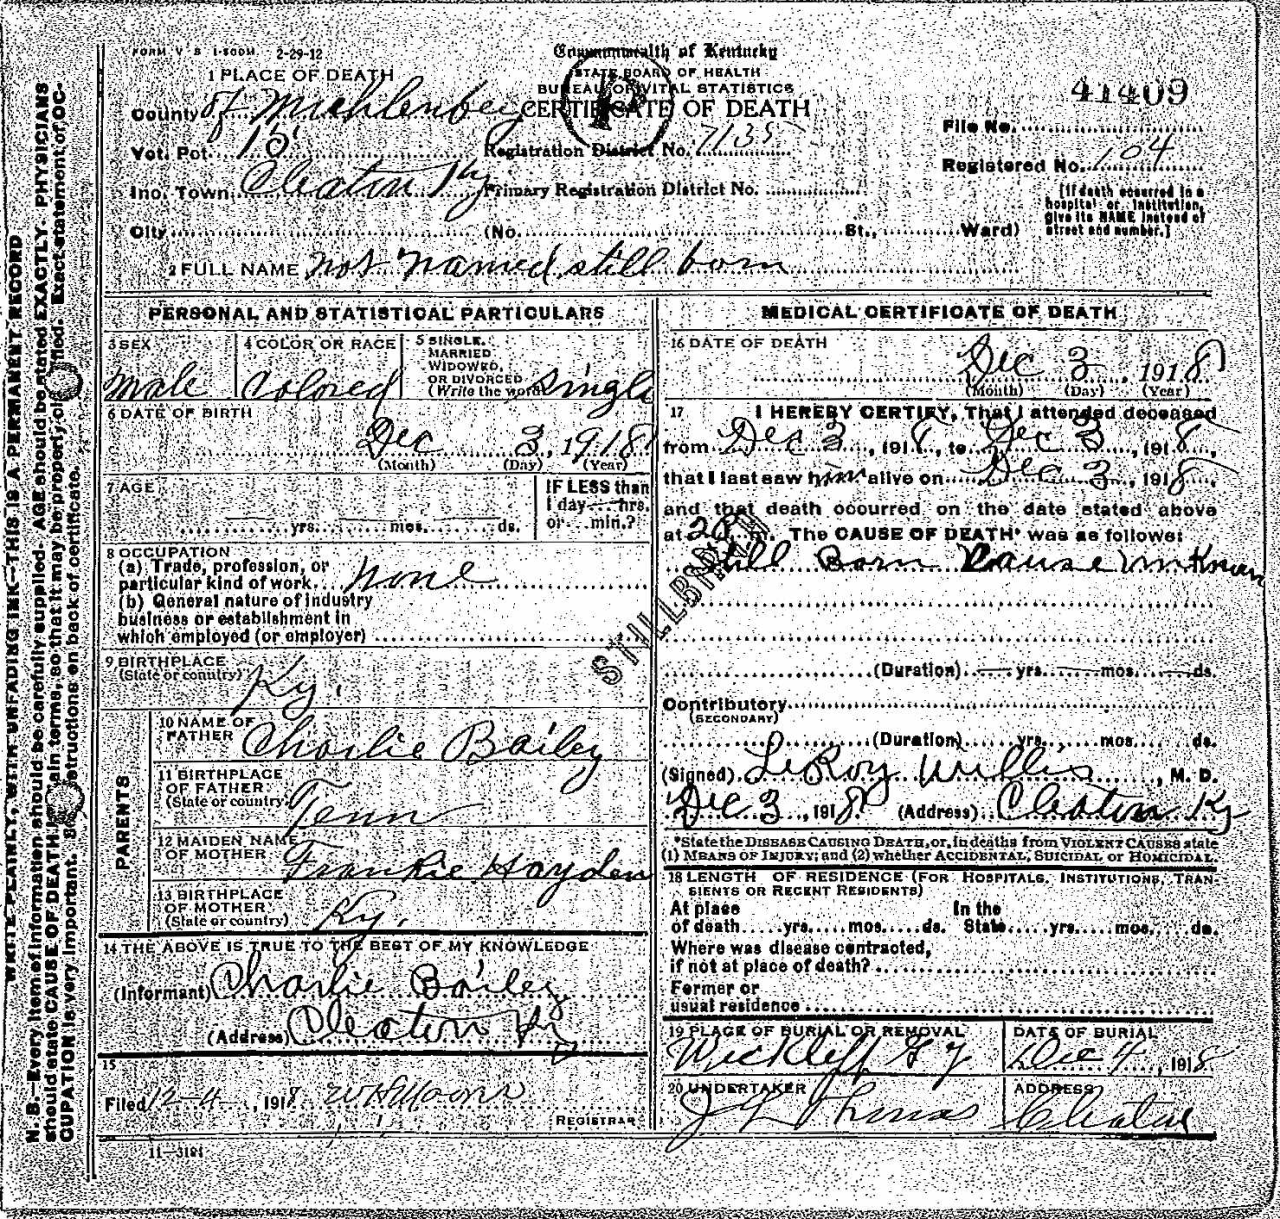 FORM V S 1-500M 2-29-12
Commonwealth of Kentucky
STATE BOARD OF HEALTH
BUREAU OF VITAL STATISTICS
CERTIFICATE OF DEATH
41409
1 PLACE OF DEATH
County of Muhlenberg
Vot. Pct. 15
Registration District No. 7135
File No.
Registered No. 104
Inc. Town Cleaton Ky
Primary Registration District No.
[If death occurred in a hospital or institution, give its NAME instead of street and number.]
City (No. St., Ward)
2 FULL NAME not named still born
PERSONAL AND STATISTICAL PARTICULARS
3 SEX
Male
4 COLOR OR RACE
Colored
5 SINGLE, MARRIED WIDOWED, OR DIVORCED (Write the word)
Single
6 DATE OF BIRTH
Dec 3, 1918
(Month) (Day) (Year)
7 AGE
yrs. mos. ds.
IF LESS than
1 day hrs.
or min.?
8 OCCUPATION
(a) Trade, profession, or
particular kind of work none
(b) General nature of industry
business or establishment in
which employed (or employer)
9 BIRTHPLACE
(State or country)
Ky.
PARENTS
10 NAME OF FATHER
Charlie Bailey
11 BIRTHPLACE OF FATHER
(State or country)
Tenn
12 MAIDEN NAME OF MOTHER
Frankie Hayden
13 BIRTHPLACE OF MOTHER
(State or country)
Ky.
14 THE ABOVE IS TRUE TO THE BEST OF MY KNOWLEDGE
(Informant) Charlie Bailey
(Address) Cleaton Ky
15
Filed 12-4, 1918 W H Moore
REGISTRAR
11-3184
MEDICAL CERTIFICATE OF DEATH
16 DATE OF DEATH
Dec 3, 1918
(Month) (Day) (Year)
17 I HEREBY CERTIFY, That I attended deceased
from Dec 3, 1918, to Dec 3, 1918,
that I last saw him alive on Dec 3, 1918,
and that death occurred on the date stated above
at m. The CAUSE OF DEATH* was as follows:
Still Born Cause unknown
STILLBIRTH
(Duration) yrs. mos. ds.
Contributory
(SECONDARY)
(Duration) yrs. mos. ds.
(Signed) LeRoy Willis, M. D.
Dec 3, 1918 (Address) Cleaton Ky
*State the DISEASE CAUSING DEATH, or, in deaths from VIOLENT CAUSES state
(1) MEANS OF INJURY; and (2) whether ACCIDENTAL, SUICIDAL or HOMICIDAL.
18 LENGTH OF RESIDENCE (FOR HOSPITALS, INSTITUTIONS, TRAN-
SIENTS OR RECENT RESIDENTS)
At place In the
of death yrs. mos. ds. State yrs. mos. ds.
Where was disease contracted,
if not at place of death?
Former or
usual residence
19 PLACE OF BURIAL OR REMOVAL
Wickliff
DATE OF BURIAL
Dec 4, 1918
20 UNDERTAKER
ADDRESS
Cleaton
WRITE PLAINLY, WITH UNFADING INK—THIS IS A PERMANENT RECORD
N. B.—Every item of information should be carefully supplied. AGE should be stated EXACTLY. PHYSICIANS
should state CAUSE OF DEATH in plain terms, so that it may be properly classified. Exact statement of OC-
CUPATION is very important. See instructions on back of certificate.